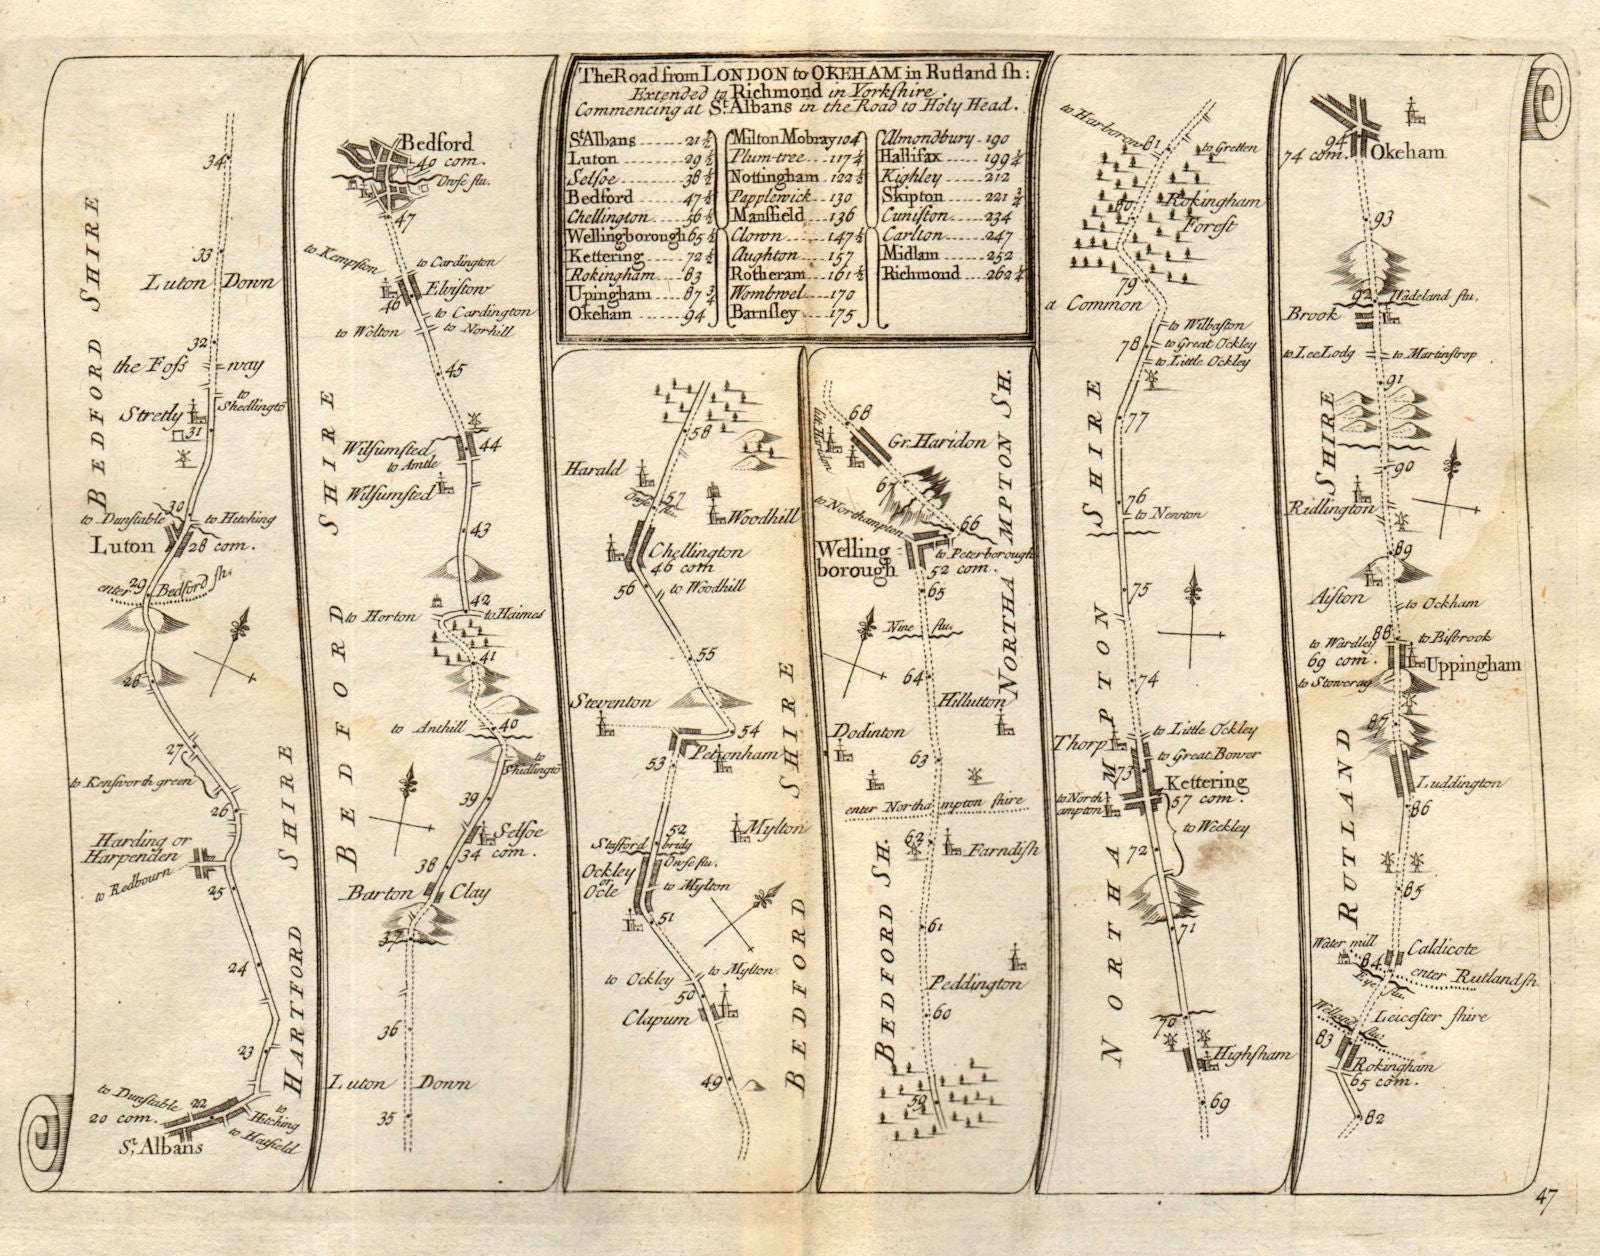 The Road from LONDON to OKEHAM in Rutland sh:
Extended to Richmond in Yorkshire.
Commencing at St. Albans in the Road to Holy Head.
St Albans 21 ½
Luton 29 ½
Selsoe 38 ½
Bedford 47 ½
Chellington 56 ½
Wellingborough 65 ½
Kettering 72 ½
Rokingham 83
Upingham 87 ¾
Okeham 94
Milton Mobray 104
Plum-tree 117 ¼
Nottingham 122 ½
Papplewick 130
Mansfield 136
Clown 147 ½
Aughton 157
Rotheram 161 ½
Wombwel 170
Barnsley 175
Almondbury 190
Hallifax 199 ¼
Kighley 212
Skipton 221 ¾
Cuniston 234
Carlton 247
Midlam 252
Richmond 262 ¼
34
33
Luton Down
32
the Foss way
to Shedlington
Stretly
31
30
to Dunstable
to Hitching
Luton
28 com.
29
enter Bedford sh.
28
27
to Kensworth green
26
Harding or
Harpenden
to Redbourn
25
24
23
to Dunstable
20 com.
22
to Hitching
to Hatfield
St. Albans
BEDFORD SHIRE
HARTFORD SHIRE
Bedford
40 com.
Owse flu.
47
to Kempston
to Cardington
Elviston
46
to Cardington
to Wolton
to Norhill
45
44
Wilsumsted
to Amtle
Wilsumsted
43
42
to Horton
to Haimes
41
40
to Anthill
to Shidlington
39
Selsoe
34 com.
38
Barton Clay
37
36
Luton Down
35
BEDFORD SHIRE
58
Harald
57
Owse flu.
Woodhill
Chellington
46 com
56
to Woodhill
55
Steventon
54
53
Pettenham
52
Mylton
Stafford bridg
Owse flu.
Ockley
or
Ocle
to Mylton
51
to Ockley
to Mylton
50
Clapum
49
BEDFORD SHIRE
68
Lit. Haridon
Gr. Haridon
67
to Northampton
66
Welling
borough
to Peterborough
52 com.
65
Nine flu.
64
Hillutton
Dodinton
63
enter Northampton shire
62
Farndish
61
Peddington
60
59
NORTHAMPTON SH.
BEDFORD SH.
to Harborow
81
to Gretten
80
Rokingham
Forest
79
a Common
to Wilbaston
78
to Great Ockley
to Little Ockley
77
76
to Newton
75
74
to Little Ockley
Thorp
to Great Bower
73
Kettering
57 com.
to Northampton
to Weekley
72
71
70
Highsham
69
NORTHAMPTON SHIRE
94
74 com.
Okeham
93
92
Wadeland flu.
Brook
to Lee Lodg
to Martinstrop
91
90
Ridlington
89
Aiston
to Ockham
to Wardley
88
to Bisbrook
69 com.
Uppingham
to Stowerag
87
Luddington
86
85
Water mill
Caldicote
84
enter Rutland sh.
Eye flu.
Welland flu.
Leicester shire
83
Rokingham
65 com.
82
RUTLAND SHIRE
47